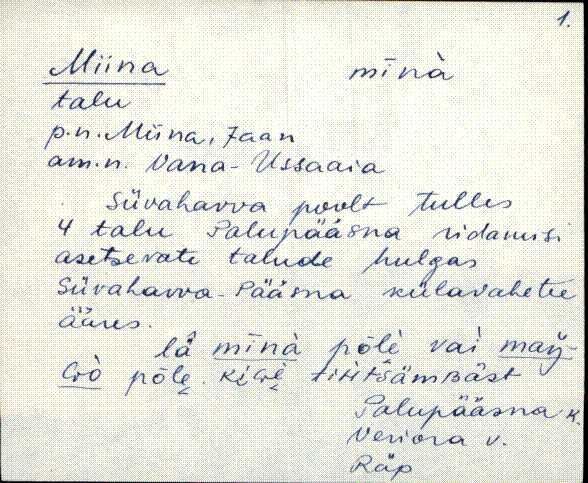 1.
Miina mīnà
talu
p.n. Miina, Jaan
am.n. Vana-Ussaaia
Süvahavva poolt tulles
4 talu Palupääsna ridamisi
asetsevate talude hulgas
Süvahavva-Pääsna külavahetee
ääres.
lä̂ mīnà põlè vai
põle
Palupääsna k.
Veriora v.
Räp